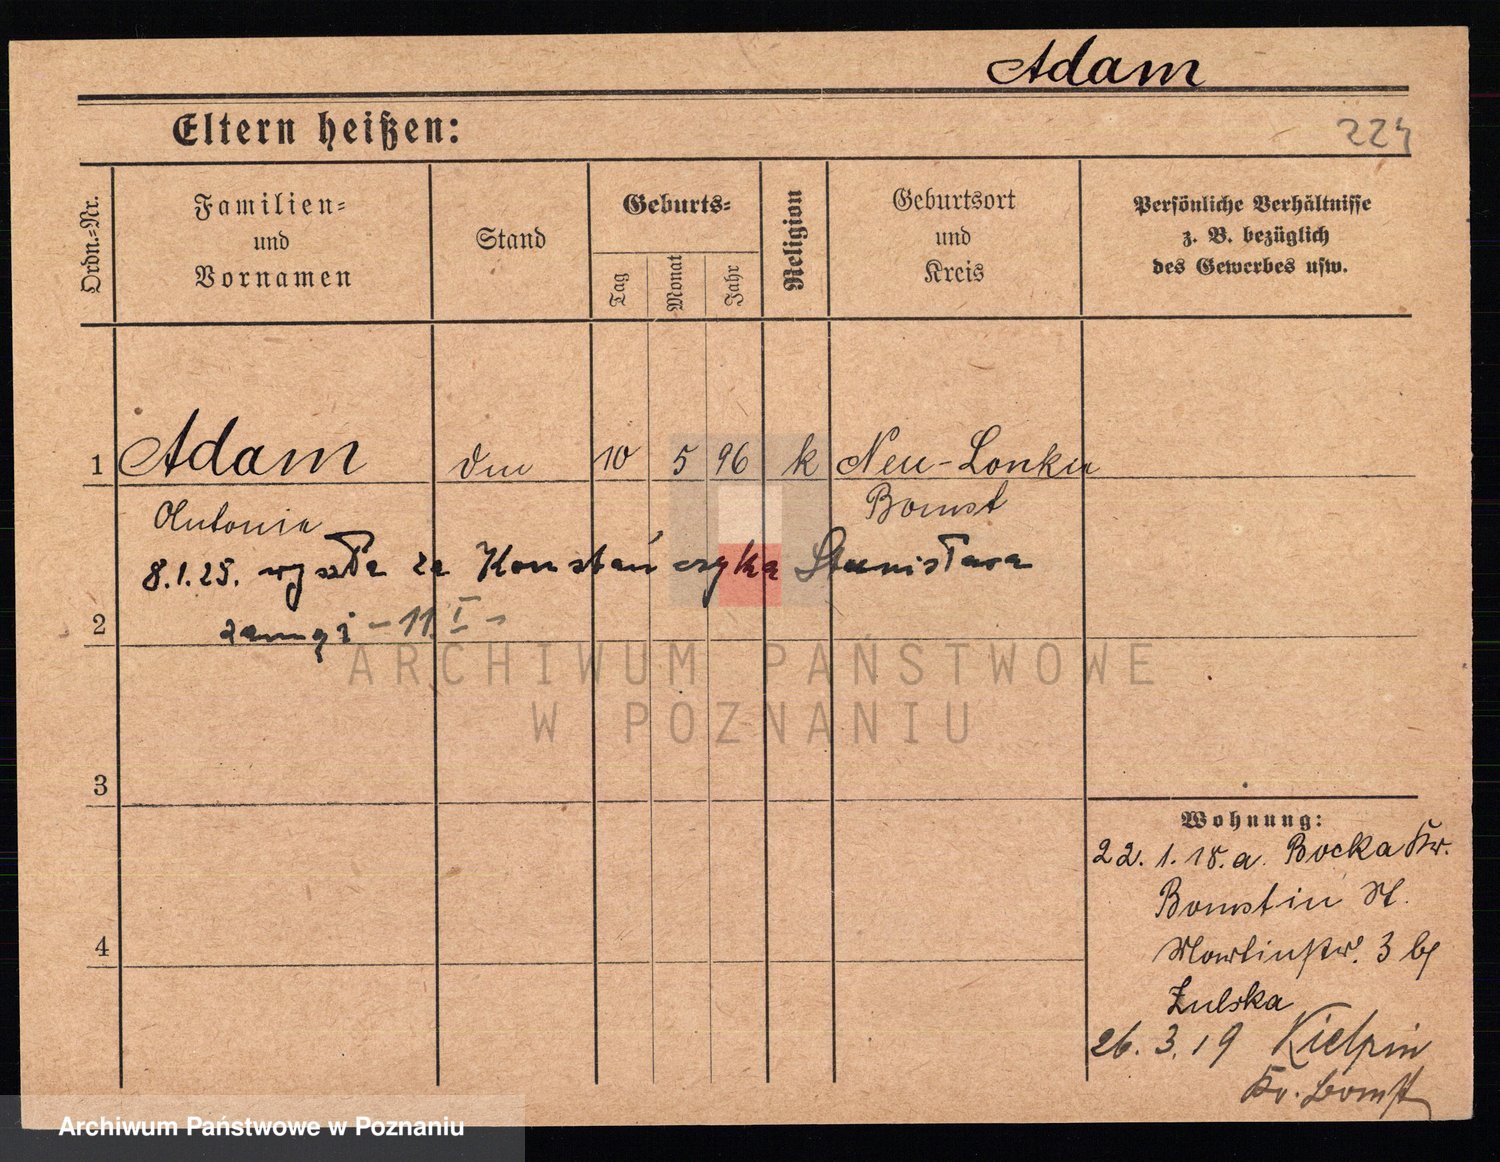 Adam
Eltern heißen:
224
Ordn.=Nr.
Familien=
und
Vornamen
Stand
Geburts=
Tag
Monat
Jahr
Religion
Geburtsort
und
Kreis
Persönliche Verhältnisse
z. B. bezüglich
des Gewerbes usw.
1 Adam 10 5 96 k Neu-Lonkie
Antonie Bomst
8.1.25. wyszła za Konstańczyka Stanisława
2 zamąż - 11 I -
ARCHIWUM PAŃSTWOWE
W POZNANIU
3
Wohnung:
22. 1. 18. a. Bocka Kr.
Bomst in St.
4 Martinstr. 3 bei
Zulska
26. 3. 19 Kielpin
Kr. Bomst
Archiwum Państwowe w Poznaniu